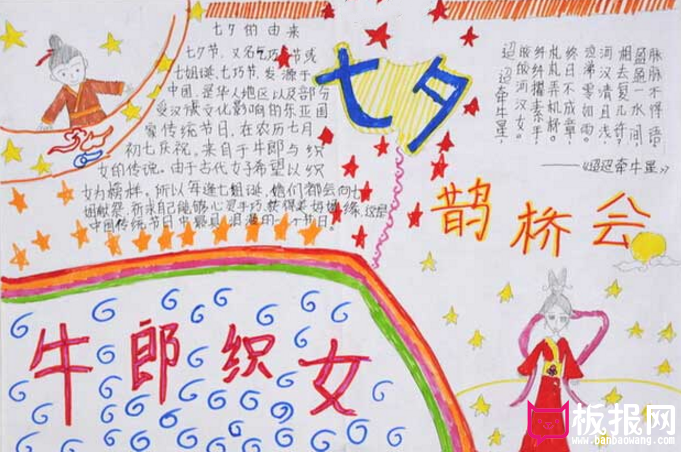 七夕的由来
七夕节，又名乞巧节或
七姐诞、七巧节，发源于
中国，是华人地区以及部分
受汉族文化影响的东亚国
家传统节日，在农历七月
初七庆祝，来自于牛郎与织
女的传说。由于古代女子希望以织
女为榜样，所以每逢七姐诞，她们都会向七
姐献祭，祈求自己能够心灵手巧获得美好姻缘，这是
中国传统节日中最具浪漫的一个节日。
七夕
迢迢牵牛星，
皎皎河汉女。
纤纤擢素手，
札札弄机杼。
终日不成章，
泣涕零如雨。
河汉清且浅，
相去复几许？
盈盈一水间，
脉脉不得语。
——《迢迢牵牛星》
鹊桥会
牛郎织女
板报网
www.banbaowang.com